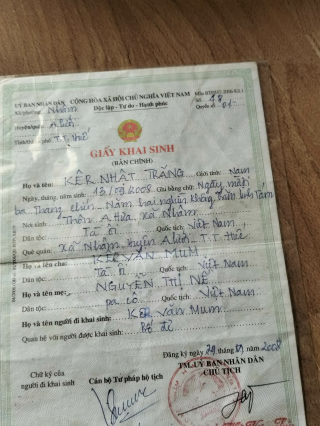 ỦY BAN NHÂN DÂN CỘNG HÒA XÃ HỘI CHỦ NGHĨA VIỆT NAM
Xã/phường: Nhâm Độc lập - Tự do - Hạnh phúc Số 48
Huyện/quận: A Lưới Quyển số 01
Tỉnh/thành phố: T.T. Huế
GIẤY KHAI SINH
(BẢN CHÍNH)
Họ và tên: KÊR NHẬT TRĂNG Giới tính: Nam
Ngày, tháng, năm sinh: 13/09/2008 Ghi bằng chữ: Ngày mười
ba Tháng chín Năm hai nghìn không trăm linh Tám
Nơi sinh: Thôn A Hưa, xã Nhâm
Dân tộc: Tà ôi Quốc tịch: Việt Nam
Quê quán: xã Nhâm, huyện A Lưới, T.T. Huế
Họ và tên cha: KÊR VĂN MUM
Dân tộc: Tà ôi Quốc tịch: Việt Nam
Họ và tên mẹ: NGUYỄN THỊ NÊ
Dân tộc: pa cô Quốc tịch: Việt Nam
Họ và tên người đi khai sinh: Kêr Văn Mum
Quan hệ với người được khai sinh: Bố đẻ
Đăng ký ngày 29 tháng 09 năm 2008
Chữ ký của người đi khai sinh
Cán bộ Tư pháp hộ tịch
TM. ỦY BAN NHÂN DÂN
CHỦ TỊCH